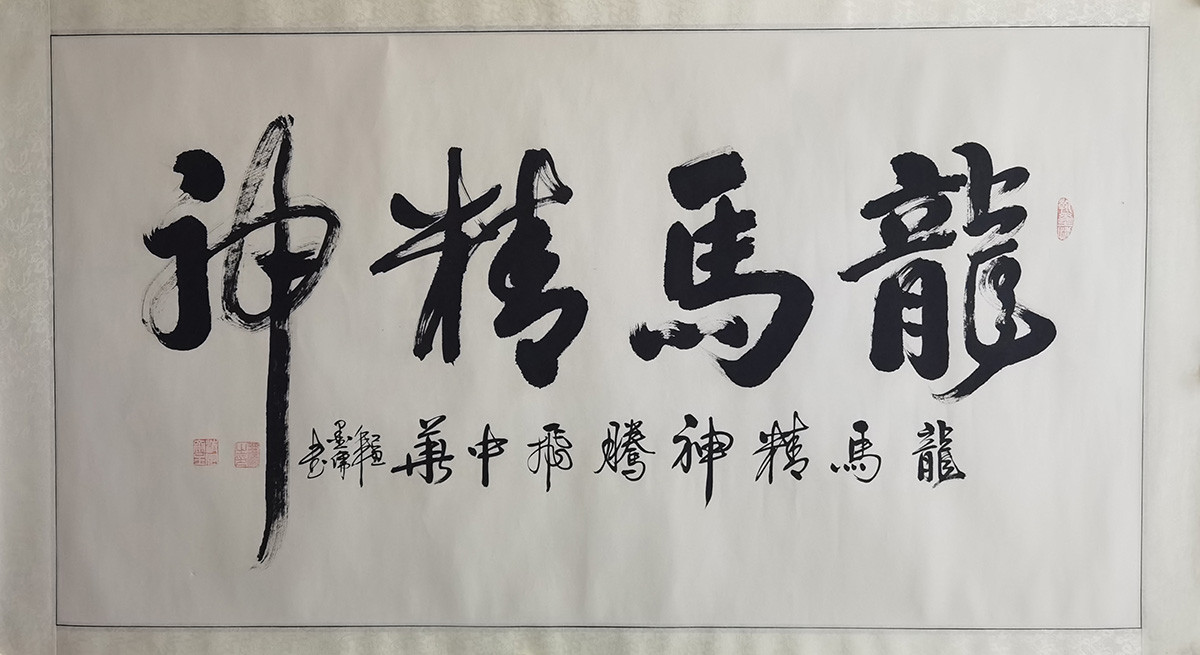 龍馬精神
龍馬精神騰飛中華